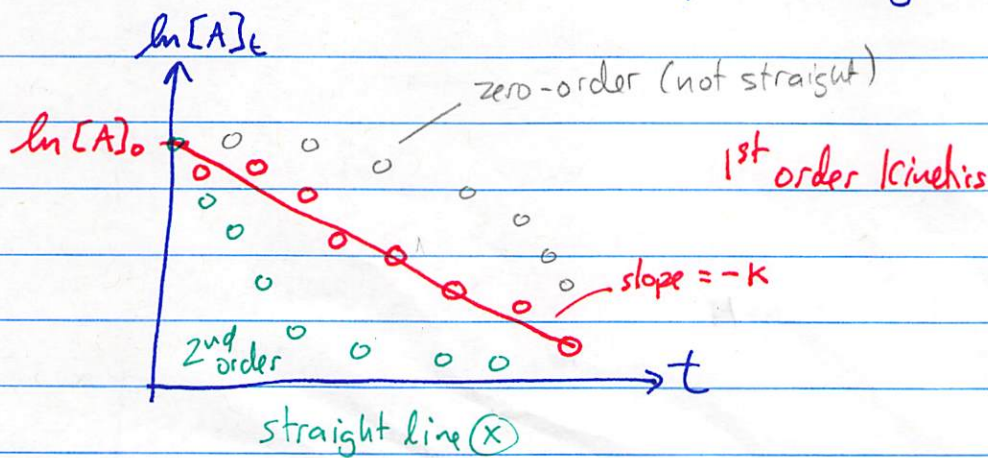 ln[A]t
zero-order (not straight)
ln[A]₀
1st order kinetics
slope = -k
2nd
order
t
straight line ⓧ